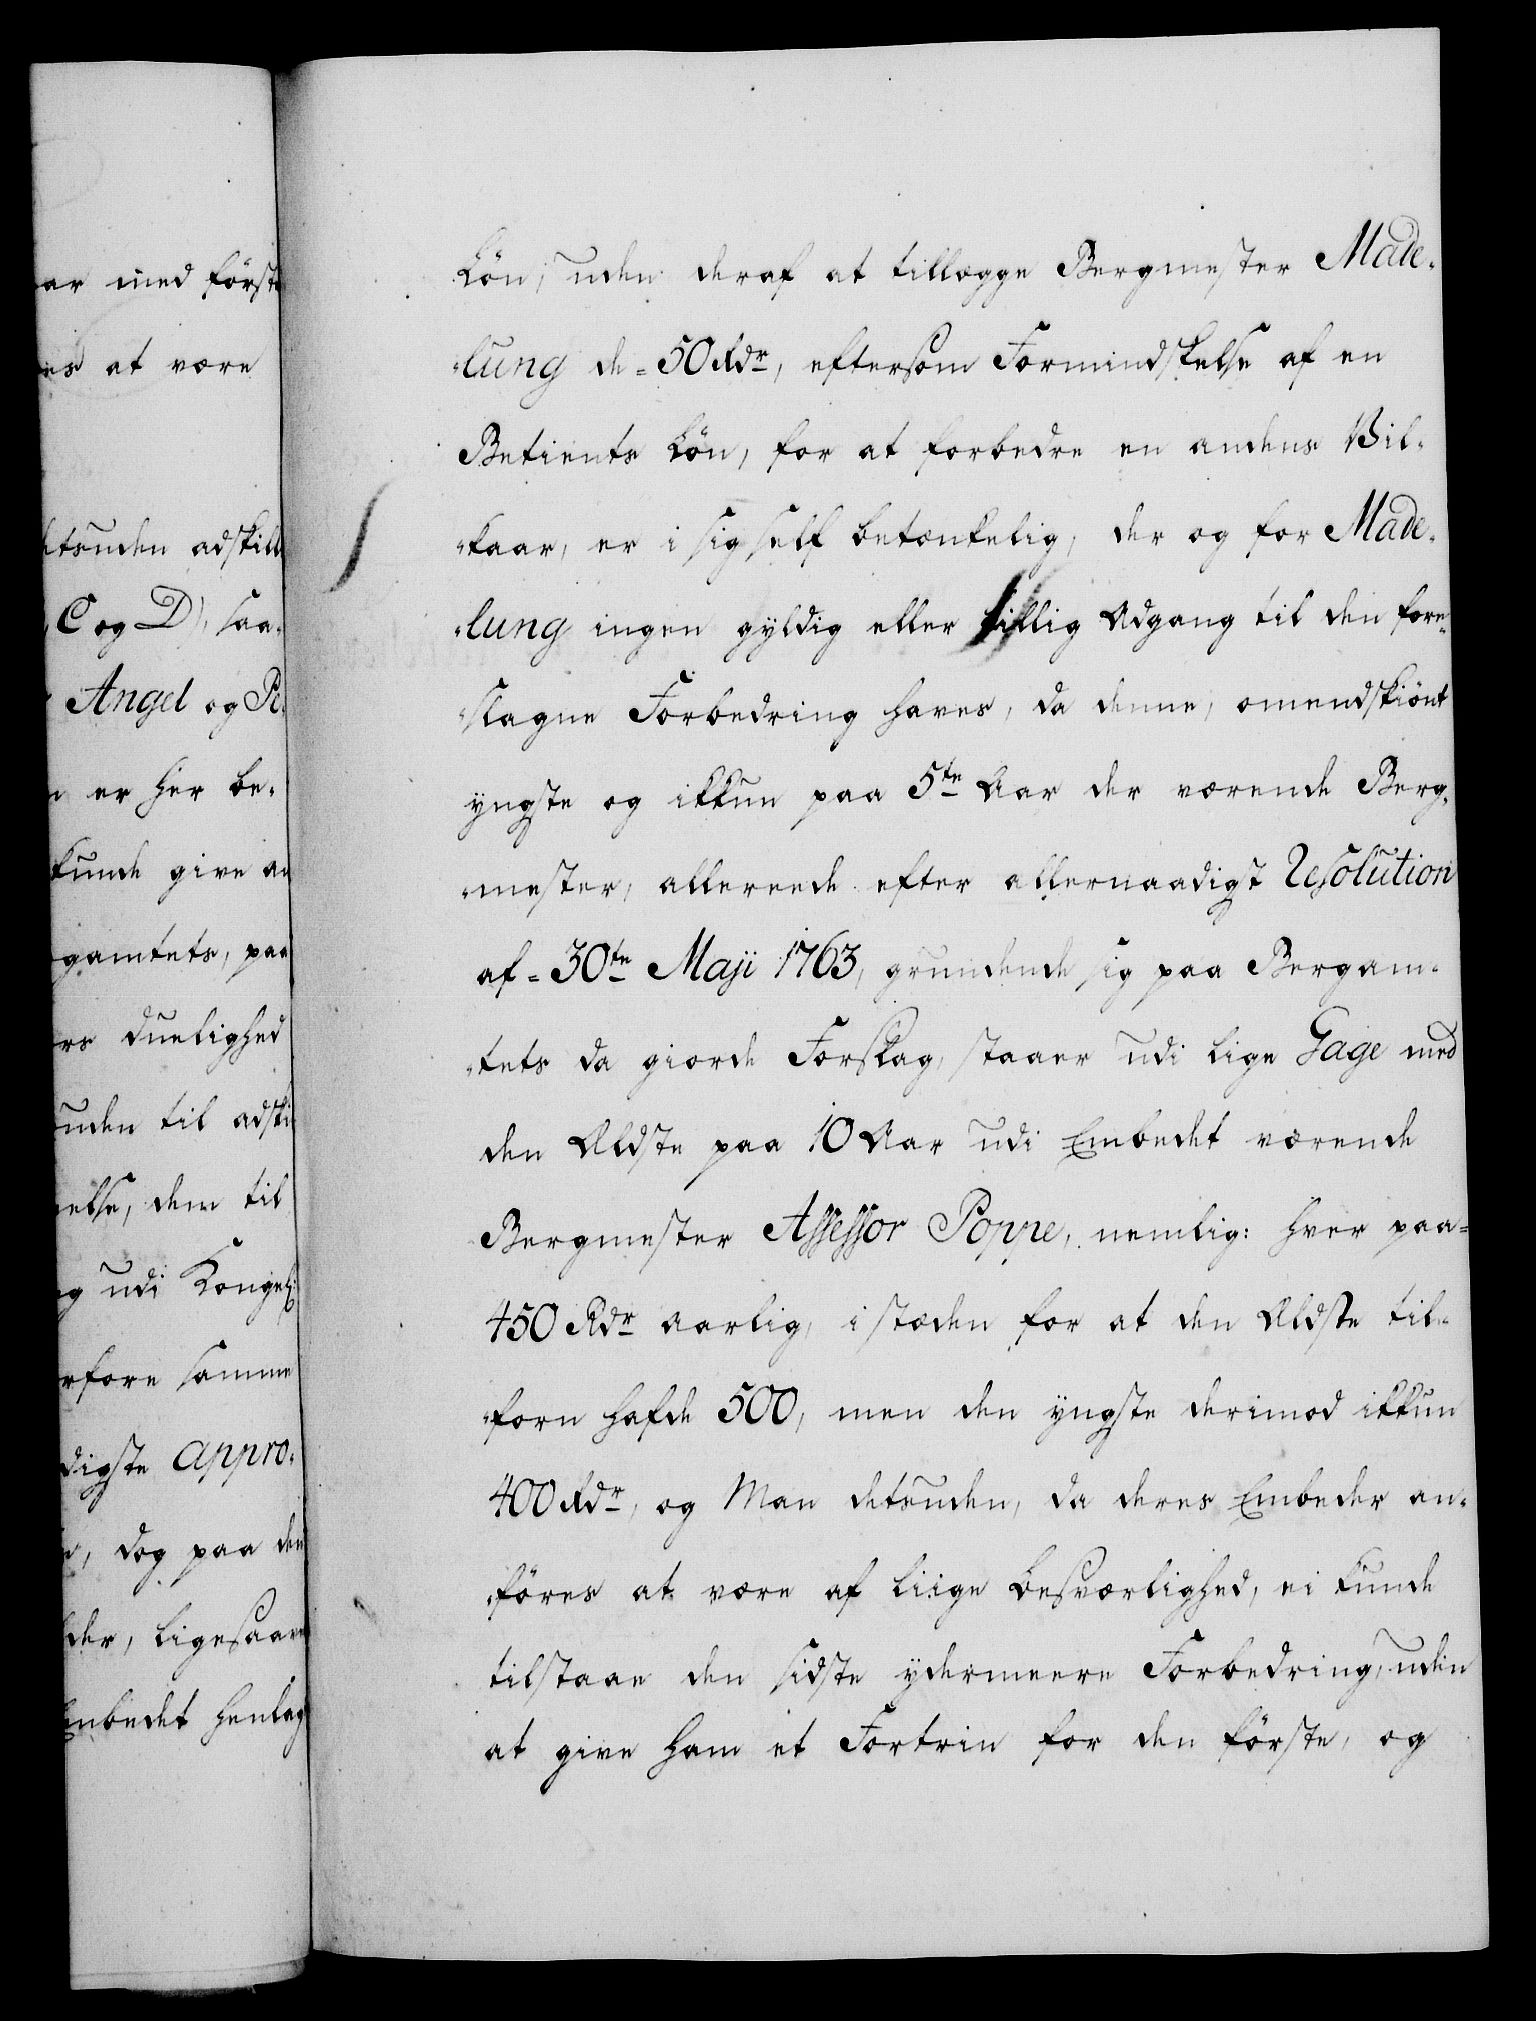 ar med först
es at være
etsuden adskill
C og D), saa-
Angel og Pe-
er her be-
kunde give an
gamtets, paa
rs Duelighed
uden til adski
else, dem til
g udi Kongel:
rfore samme
digste Appro-
, dog paa den
der, ligesaave
mbedet henlag
Løn, uden deraf at tillægge Bergmester Made-
-lung de = 50 Rdr, eftersom Formindskelse af en
Betients Løn, for at forbedre en andens Vil-
-kaar, er i sig self betænkelig, der og for Made-
-lung ingen gyldig eller billig Adgang til den fore-
-slagne Forbedring haves, da denne, omendskiönt
yngste og ikkun paa 5te Aar der værende Berg-
-mester, allereede efter allernaadigst Resolution
af = 30te Maji 1763, grundende sig paa Bergam-
-tets da giorde Forslag, staaer udi lige Gage med
den Ældste paa 10 Aar udi Embedet værende
Bergmester Assessor Poppe, nemlig: hver paa =
450 Rdr aarlig, i stæden for at den Ældste til-
-forn hafde 500, men den yngste derimod ikkun
400 Rdr, og Man detsuden, da deres Embeder an-
-föres at være af liige Besværlighed, ei kunde
tilstaae den sidste ydermeere Forbedring, uden
at give ham et Fortrin for den förste, og